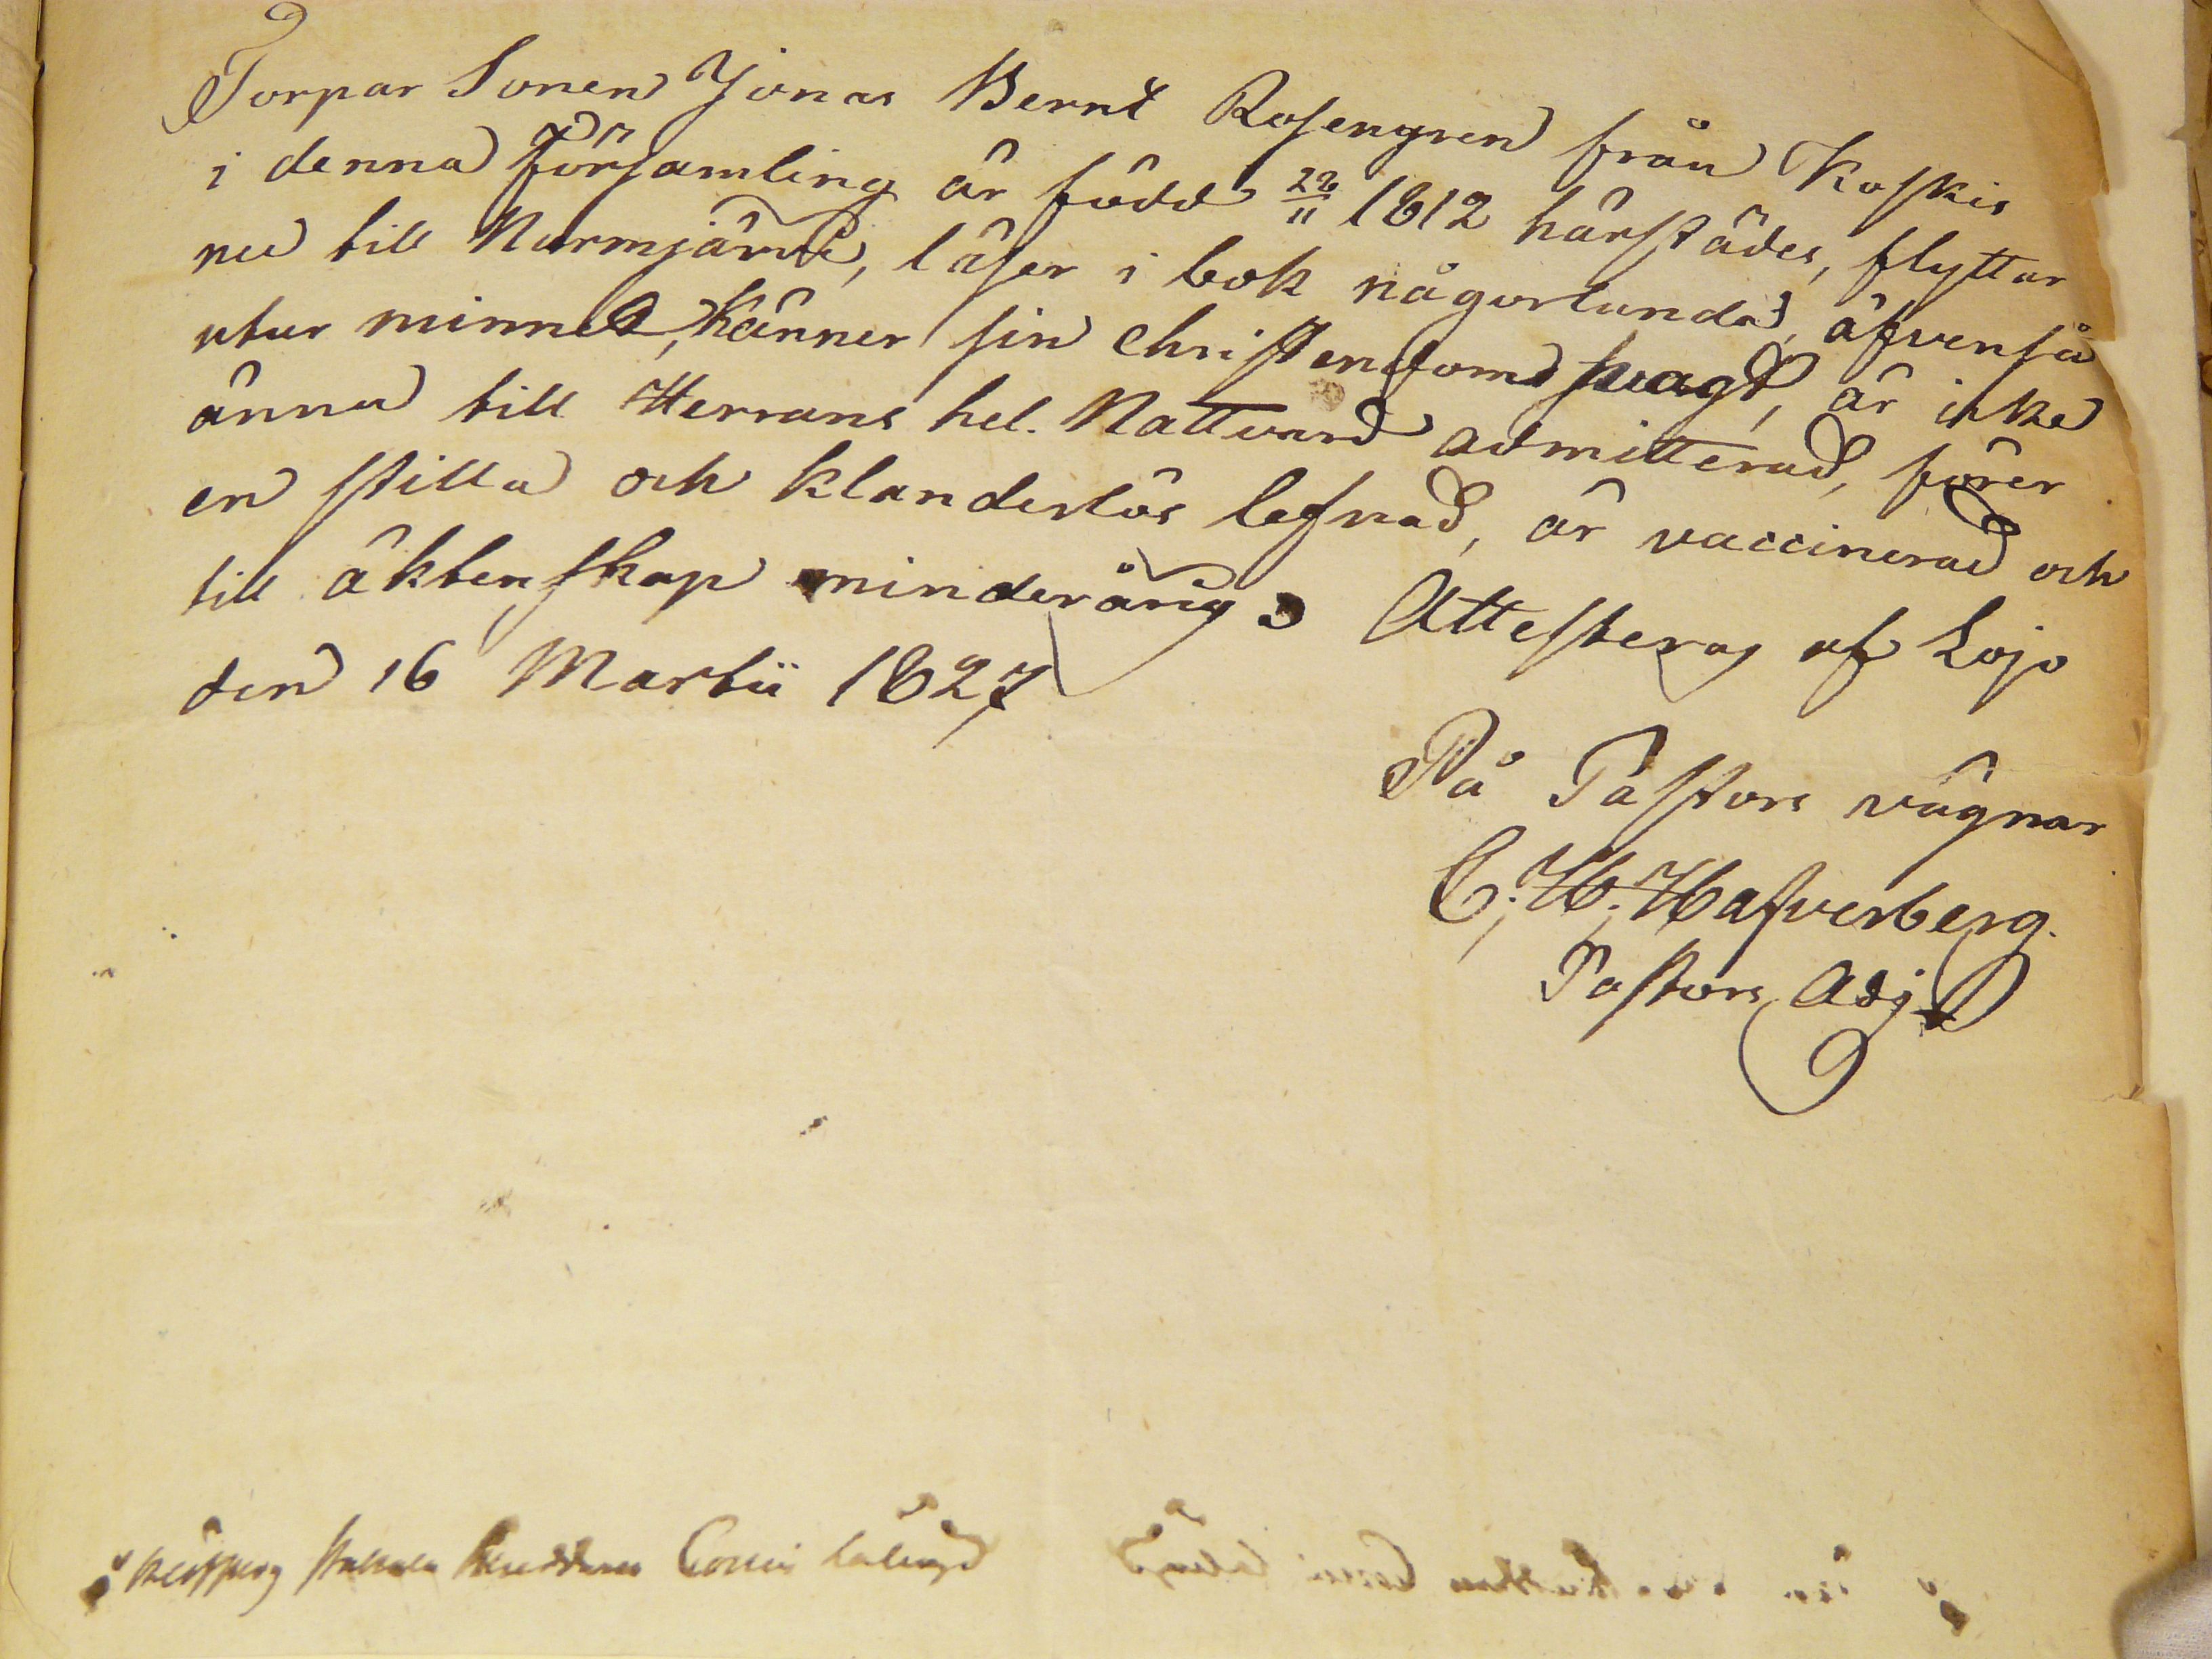 Torpar Sonen Jonas Bernt Rosengren från Koskis
i denna Församling är född 22/11 1812 härstädes, flyttar
nu till Nurmjärvi, läser i bok någorlunda, äfvenså
utur minnet, känner sin Christendom svagt, är icke
ännu till Herrans hel. Nattvard admitterad, förer
en stilla och klanderlös lefnad, är vaccinerad och
till äktenskap minderårig. Attesteras af Lojo
den 16 Martii 1827
På Pastors vägnar
C. H. Hafverberg.
Pastors Adj.